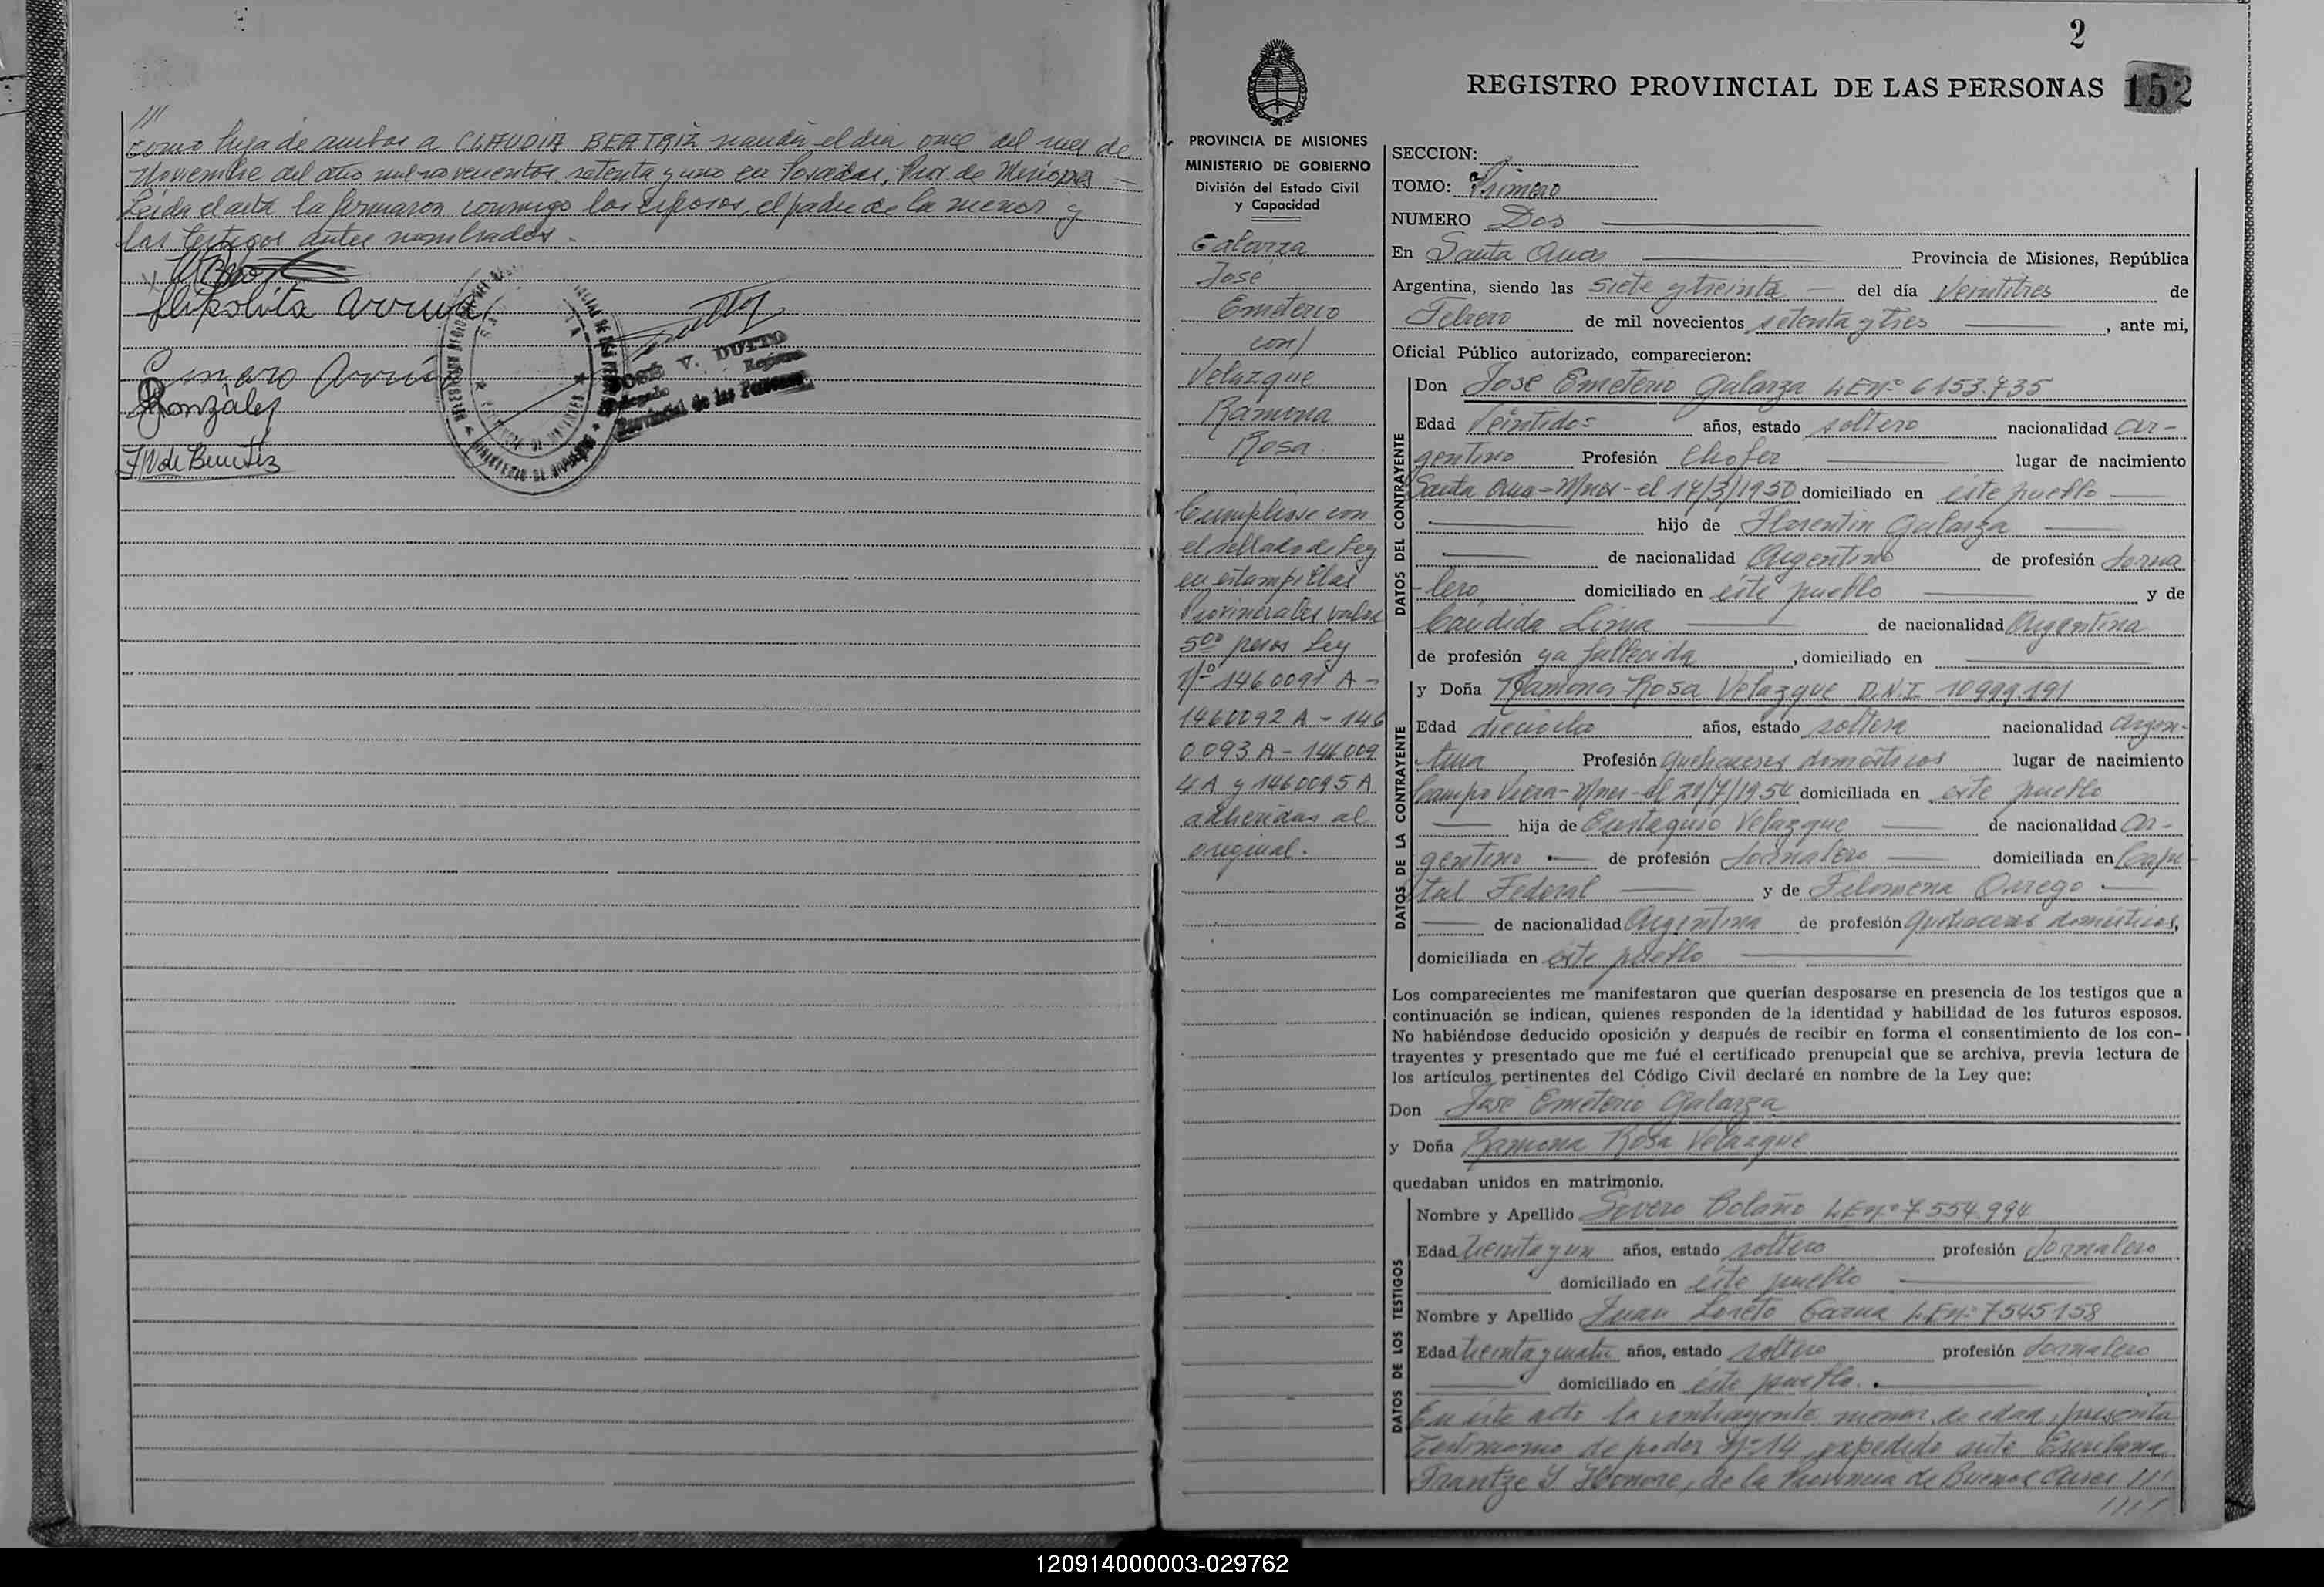 ///
como hija de ambos a CLAUDIA BEATRIZ nacida el día once del mes de
Noviembre del año mil novecientos setenta y uno en Posadas, Prov. de Misiones —
Leida el acta la firmaron conmigo los esposos, el padre de la menor y
los testigos antes nombrados.
Hipolita
González
F N de Benitez
JOSÉ V. DUTTO
Delegado
Registro
Provincial de las Personas
2
REGISTRO PROVINCIAL DE LAS PERSONAS 152
PROVINCIA DE MISIONES
MINISTERIO DE GOBIERNO
División del Estado Civil
y Capacidad
Galarza
José
Emeterio
con/
Velazque
Ramona
Rosa.
Cumplióse con
el sellado de Ley
en estampillas
Provinciales valor
5,00 pesos Ley
Nº 1460091 A -
1460092 A - 146
0093 A - 146009
4 A y 1460095 A
adheridas al
original.
SECCION:
TOMO: Primero
NUMERO Dos
En Santa Ana Provincia de Misiones, República
Argentina, siendo las siete y treinta del día veintitres de
Febrero de mil novecientos setenta y tres, ante mi,
Oficial Público autorizado, comparecieron:
DATOS DEL CONTRAYENTE
Don José Emeterio Galarza L E nº 6153.735
Edad veintidos años, estado soltero nacionalidad ar-
gentino Profesión Chofer lugar de nacimiento
Santa Ana - Mnes - el 14/3/1950 domiciliado en este pueblo
hijo de Florentin Galarza
de nacionalidad Argentino de profesión Jorna
-lero domiciliado en este pueblo y de
Cándida Lima de nacionalidad Argentina
de profesión ya fallecida, domiciliado en
DATOS DE LA CONTRAYENTE
y Doña Ramona Rosa Velazque D.N.I. 10999.191
Edad dieciocho años, estado soltera nacionalidad argen-
tina Profesión quehaceres domésticos lugar de nacimiento
Campo Viera - Mnes - el 21/7/1954 domiciliada en este pueblo
hija de Eustaquio Velazque de nacionalidad Ar-
gentino de profesión Jornalero domiciliada en Capi
tal Federal y de Filomena Orrego
de nacionalidad Argentina de profesión quehaceres domésticos,
domiciliada en este pueblo
Los comparecientes me manifestaron que querían desposarse en presencia de los testigos que a
continuación se indican, quienes responden de la identidad y habilidad de los futuros esposos.
No habiéndose deducido oposición y después de recibir en forma el consentimiento de los con-
trayentes y presentado que me fué el certificado prenupcial que se archiva, previa lectura de
los artículos pertinentes del Código Civil declaré en nombre de la Ley que:
Don José Emeterio Galarza
y Doña Ramona Rosa Velazque
quedaban unidos en matrimonio.
DATOS DE LOS TESTIGOS
Nombre y Apellido Severo Bolaño L E nº 7554.994
Edad treinta y un años, estado soltero profesión Jornalero
domiciliado en este pueblo
Nombre y Apellido Juan Loreto L E nº 7545158
Edad treinta y cuatro años, estado soltero profesión Jornalero
domiciliado en este pueblo.
En este acto la contrayente menor de edad, presenta
testimonio de poder Nº 14, expedido ante Escribana
de la Provincia de Buenos Aires ///
////
120914000003-029762